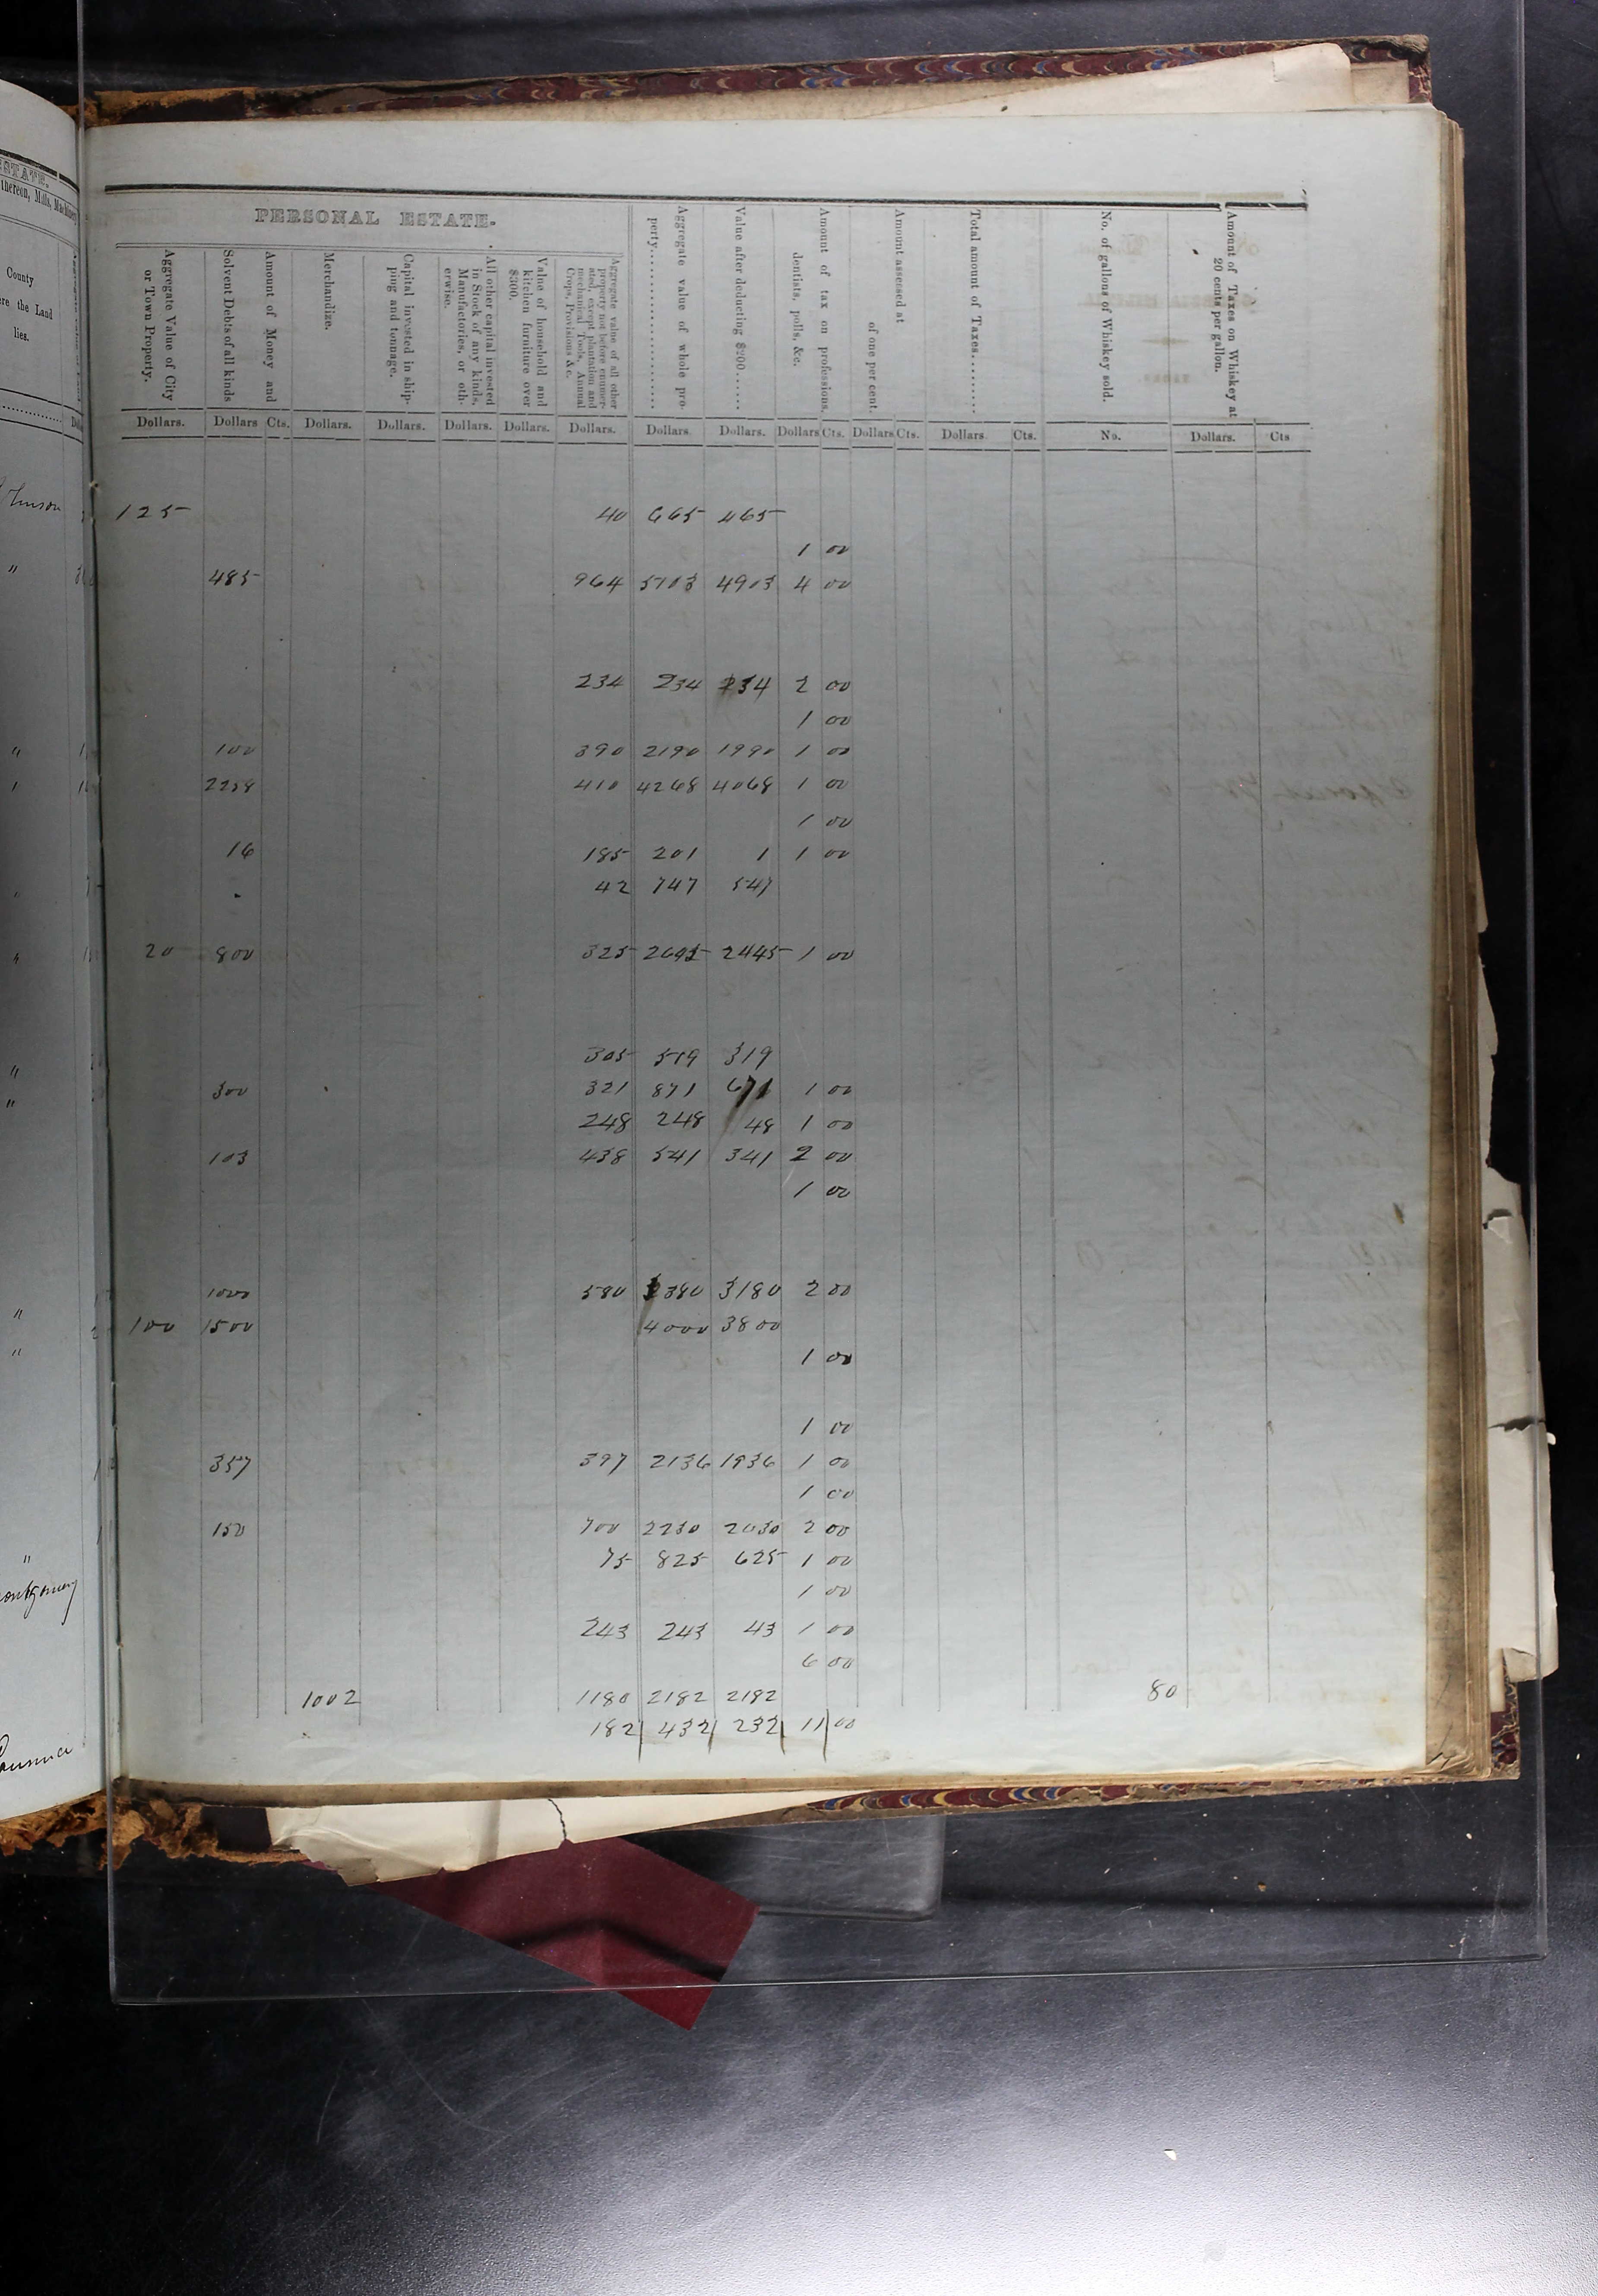 ESTATE.
thereon, Mills, Machinery
County
ere the Land
lies.
PERSONAL ESTATE.
Aggregate Value of City or Town Property.
Amount of Money and Solvent Debts of all kinds
Merchandize.
Capital invested in shipping and tonnage.
All other capital invested in Stock of any kinds, Manufactories, or otherwise.
Value of household and kitchen furniture over $300.
Aggregate value of all other property not before enumerated, except plantation and mechanical Tools, Annual Crops, Provisions &c.
Aggregate value of whole property
Value after deducting $200
Amount of tax on professions, dentists, polls, &c.
Amount assessed at of one per cent.
Total amount of Taxes
No. of gallons of Whiskey sold.
Amount of Taxes on Whiskey at 20 cents per gallon.
Dollars. Dollars Cts. Dollars. Dollars. Dollars. Dollars. Dollars. Dollars Dollars. Dollars Cts. Dollars Cts. Dollars Cts. No. Dollars. Cts
125 40 665 465
1 00
" 485 964 5103 4903 4 00
234 234 234 2 00
1 00
" 100 390 2190 1990 1 00
2258 410 4268 4068 1 00
1 00
16 185 201 1 1 00
42 747 547
20 800 325 2645 2445 1 00
" 305 519 319
" 300 321 871 671 1 00
248 248 48 1 00
103 438 541 341 2 00
1 00
" 1000 580 3380 3180 2 00
100 1500 4000 3800
" 1 00
1 00
357 397 2136 1936 1 00
1 00
150 700 2230 2030 2 00
" 75 825 625 1 00
ontgomery 1 00
243 243 43 1 00
6 00
1002 1180 2182 2182 80
182 432 232 11 00